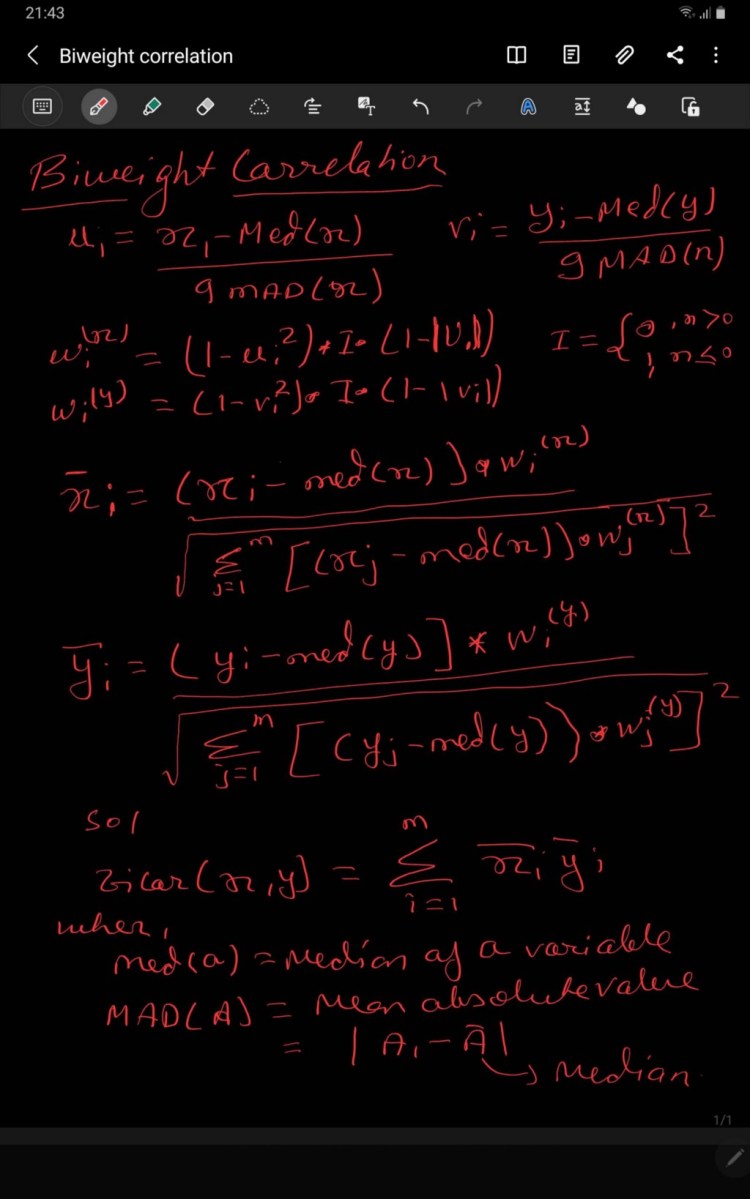 21:43
Biweight correlation
Biweight Carrelation
u_i = (x_i - Med(x)) / (9 MAD(x))    v_i = (y_i - Med(y)) / (9 MAD(n))
w_i^(x) = (1-u_i^2) * I • (1-|U_i|)    I = { 0 , n>0
1, n≤0
w_i^(y) = (1-v_i^2) • I • (1-|v_i|)
x̄_i = (x_i - med(x)) • w_i^(x) / √ Σ_{j=1}^m [(x_j - med(x)) • w_j^(x)]^2
ȳ_i = (y_i - med(y)] * w_i^(y) / √ Σ_{j=1}^m [(y_j - med(y)) • w_j^(y)]^2
so,
bicar(x,y) = Σ_{i=1}^m x̄_i ȳ_i
wher,
med(a) = Median of a variable
MAD(A) = Mean absolute value
= |A_i - Ā|
→ Median
1/1